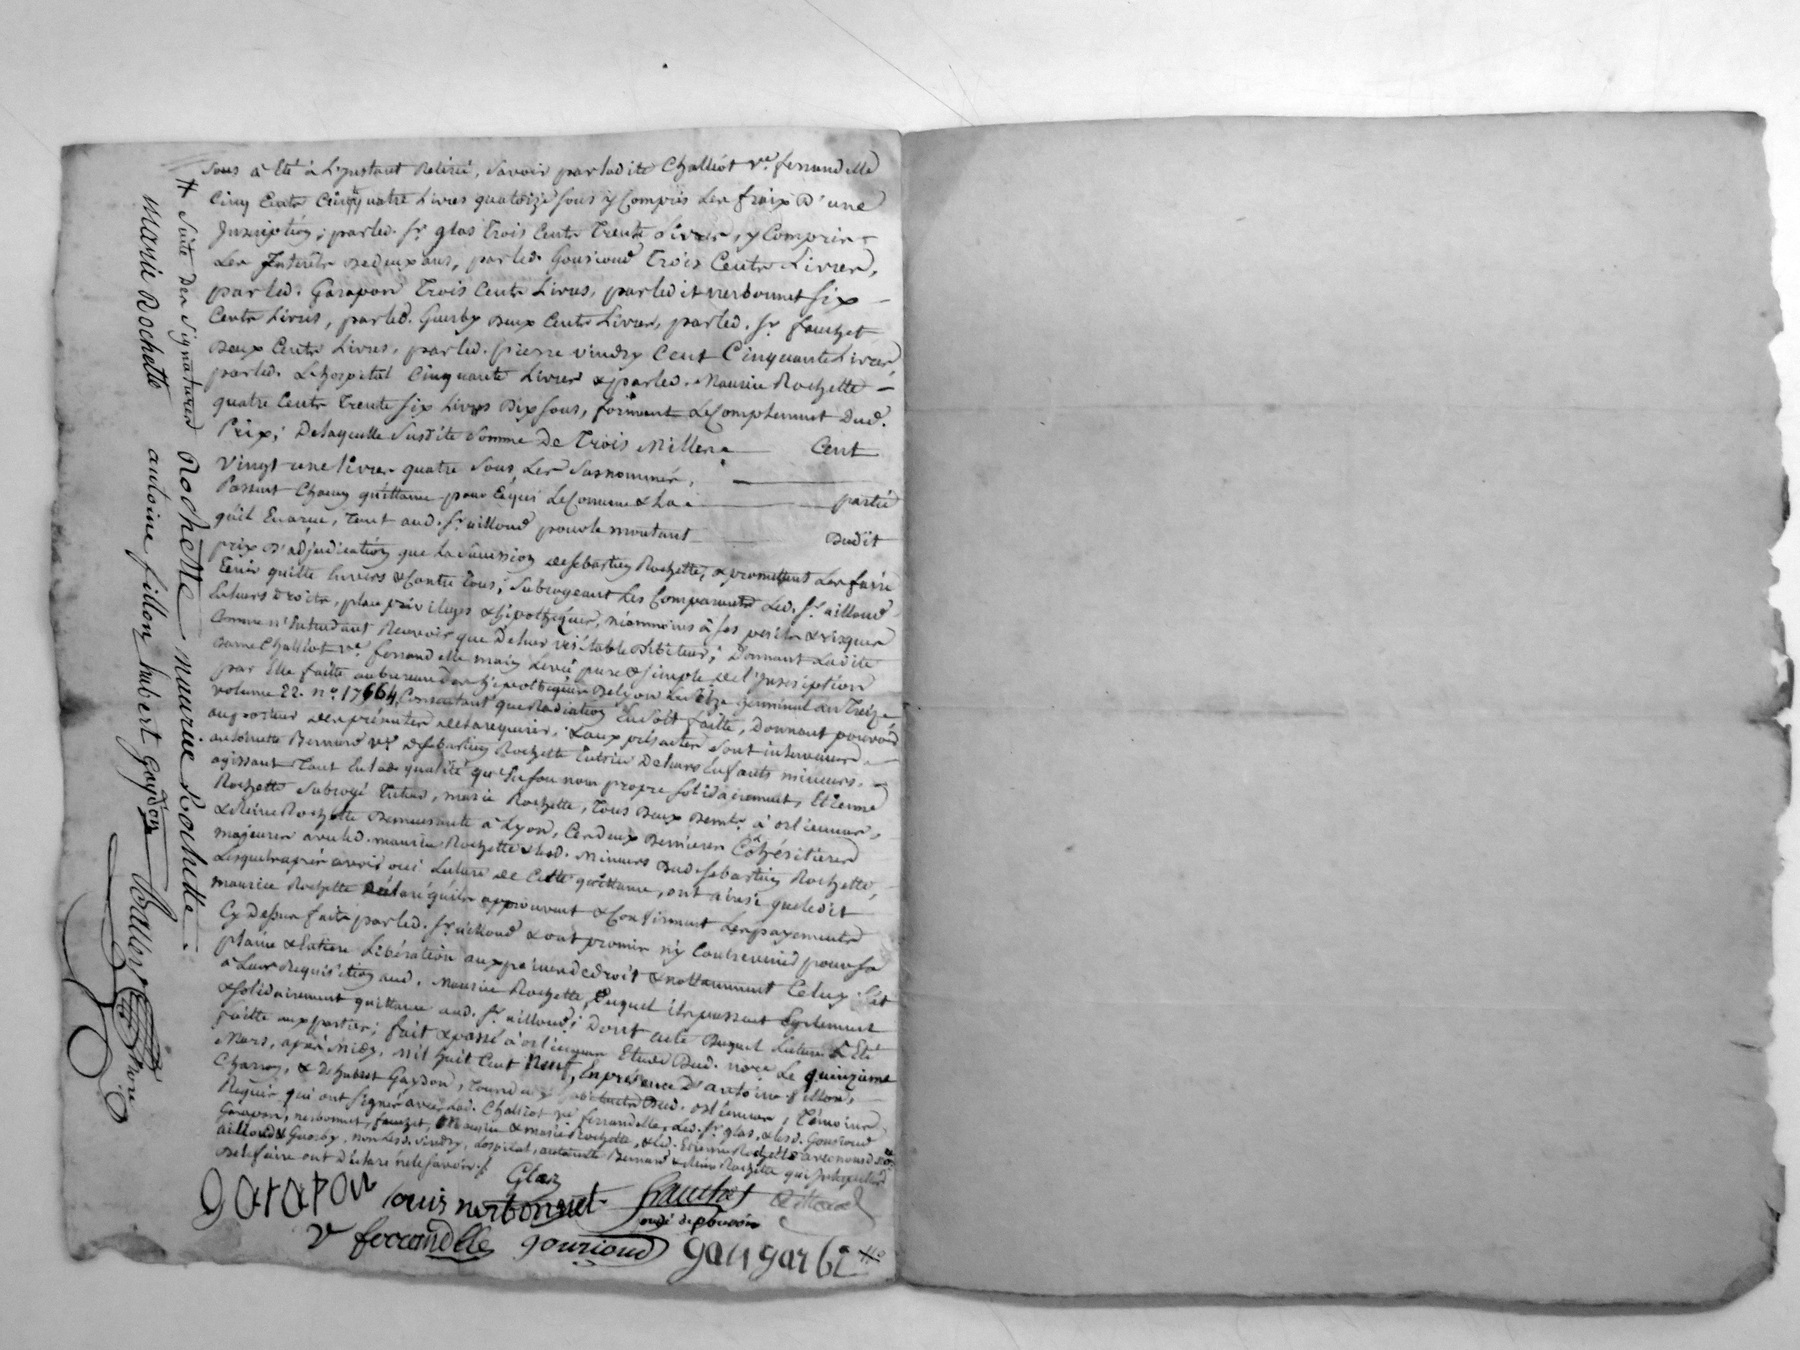 Sous a Eté à L'Instant Retiré, Savoir par ladite Challiot ve. ferrandelle
Cinq Cents Cinqte quatre Livres quatorze sous y Compris Les fraix D'une
Inscription; par led. Sr. glas Trois Cents Trente Livres, y Compris
Les Interêts de deux ans, par led. Gourioud Trois Cents Livres,
par led. Garapon Trois Cents Livres, par ledit nerbonnet Six
Cents Livres, par led. Guerby Deux Cents Livres, par led. Sr. fauchet
Deux Cents Livres, par led. pierre vindry Cent Cinquante Livres,
par led. Lhospital Cinquante Livres & par led. Maurice Rochette
quatre Cents Trente Six Livres Dix Sous, formant Le Complement Dud.
Prix; De laquelle Susdite Somme De Trois Mille Cent
Vingt une livres quatre Sous Les Susnommés,
Passent Chacun quittance pour Ce qui Le Concerne & La partie
qu'il En a reçue, Tant aud. Sr. ailloud pour le montant Dudit
prix D'adjudication que La Succession de Sebastien Rochette, & promettent Les faire
Tenir quitte Envers & Contre Tous; Subrogeant Les Comparants Led. Sr. ailloud
à Leurs Droits, place privileges & hipothèques, néanmoins à Ses perils & risques
Comme n'Entendant Recevoir que De Leur véritable Debiteur; Donnant Ladite
Dame Challiot ve. ferrandelle main Levée pure & simple de l'Inscription
par Elle faitte au bureau des hipothèques De Lyon Le Germinal an Treize
volume 22. no. 17664, Consentant que Radiation En Soit faitte, Donnant pouvoir
au porteur des présentes de la requerir. & aux présentes Sont intervenus
antoinette Bernard ve. de Sebastien Rochette Tutrice De Leurs Enfants mineurs,
agissant Tant En lad. qualité qu'En Son nom propre Solidairement, Etienne
Rochette Subrogé Tuteur, marie Rochette, Tous Deux Demts. à orlienas,
& Reine Rochette Demeurante à Lyon, Ces deux Dernieres Cohéritieres
majeures avec led. maurice Rochette & lesd. Mineurs Dud. Sebastien Rochette,
Lesquels après avoir oui Lecture de Cette quittance, ont ainsi que ledit
Maurice Rochette déclaré qu'ils approuvent & Confirment Les payements
Cy Dessus faits par led. Sr. ailloud & ont promis n'y Contrevenir pour Sa
pleine & Entiere Libération aux peines de droit & nottamment Celuy fait
à Leur Requisition aud. Maurice Rochette, Duquel ils passent Egalement
& Solidairement quittance aud. Sr. aillloud; Dont acte Duquel Lecture a Eté
faitte aux parties; fait & passé à orlienas Etude Dud. nore. Le quinzieme
Mars, après midy, mil huit Cent Neuf, En présence D'antoine fillon,
Charron, & D'hubert Gaydon, Dud. orlienas, Témoins
Requis qui ont Signé avec Lad. Challiot ve. ferrandelle, Led. Sr. glas, & lesd. Gourioud
Garapon, nerbonnet, fauchet, Maurice & marie Rochette, & led. Etienne Rochette avec nousd. nore.
ailloud & Guerby, non Lesd. vindry, Lospital, antoinette Bernard & Reine Rochette qui Interpellés
De le faire ont Déclaré ne le Savoir./.
Glas
garapon Louis nerbonnet fauchet ailloud
fondé de pouvoir
ve ferrandelle gourioud
# Suite Des Signatures Rochette maurice Rochette
Marie Rochette antoine fillon hubert Gaydon